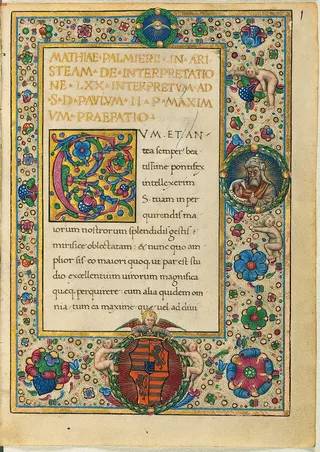 1
MATHIAE · PALMIERII · IN · ARI
STEAM · DE · INTERPRETATIO
NE · LXX · INTERPRETVM · AD
· S · D · PAVLVM · II · P · MAXIM
VM · PRAEFATIO ·
CVM · ET · AN ·
tea semper bea
tissime pontifex
intellexerim
S · tuam in per
quirendis ma
iorum nostrorum splendidis gestis
mirifice oblectatam : & nunc quo am
plior sit eo maiori quoq; ut par est stu
dio excellentium uirorum magnifica
quæq; perquirere : cum alia quidem om
nia · tum ea maxime quæ uel ad diui